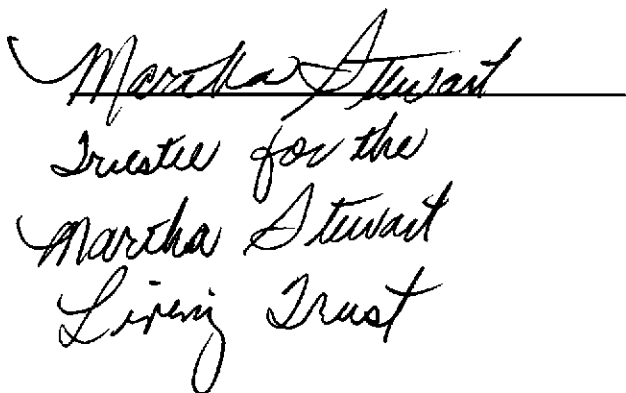 Martha Stewart
Trustee for the
Martha Stewart
Living Trust